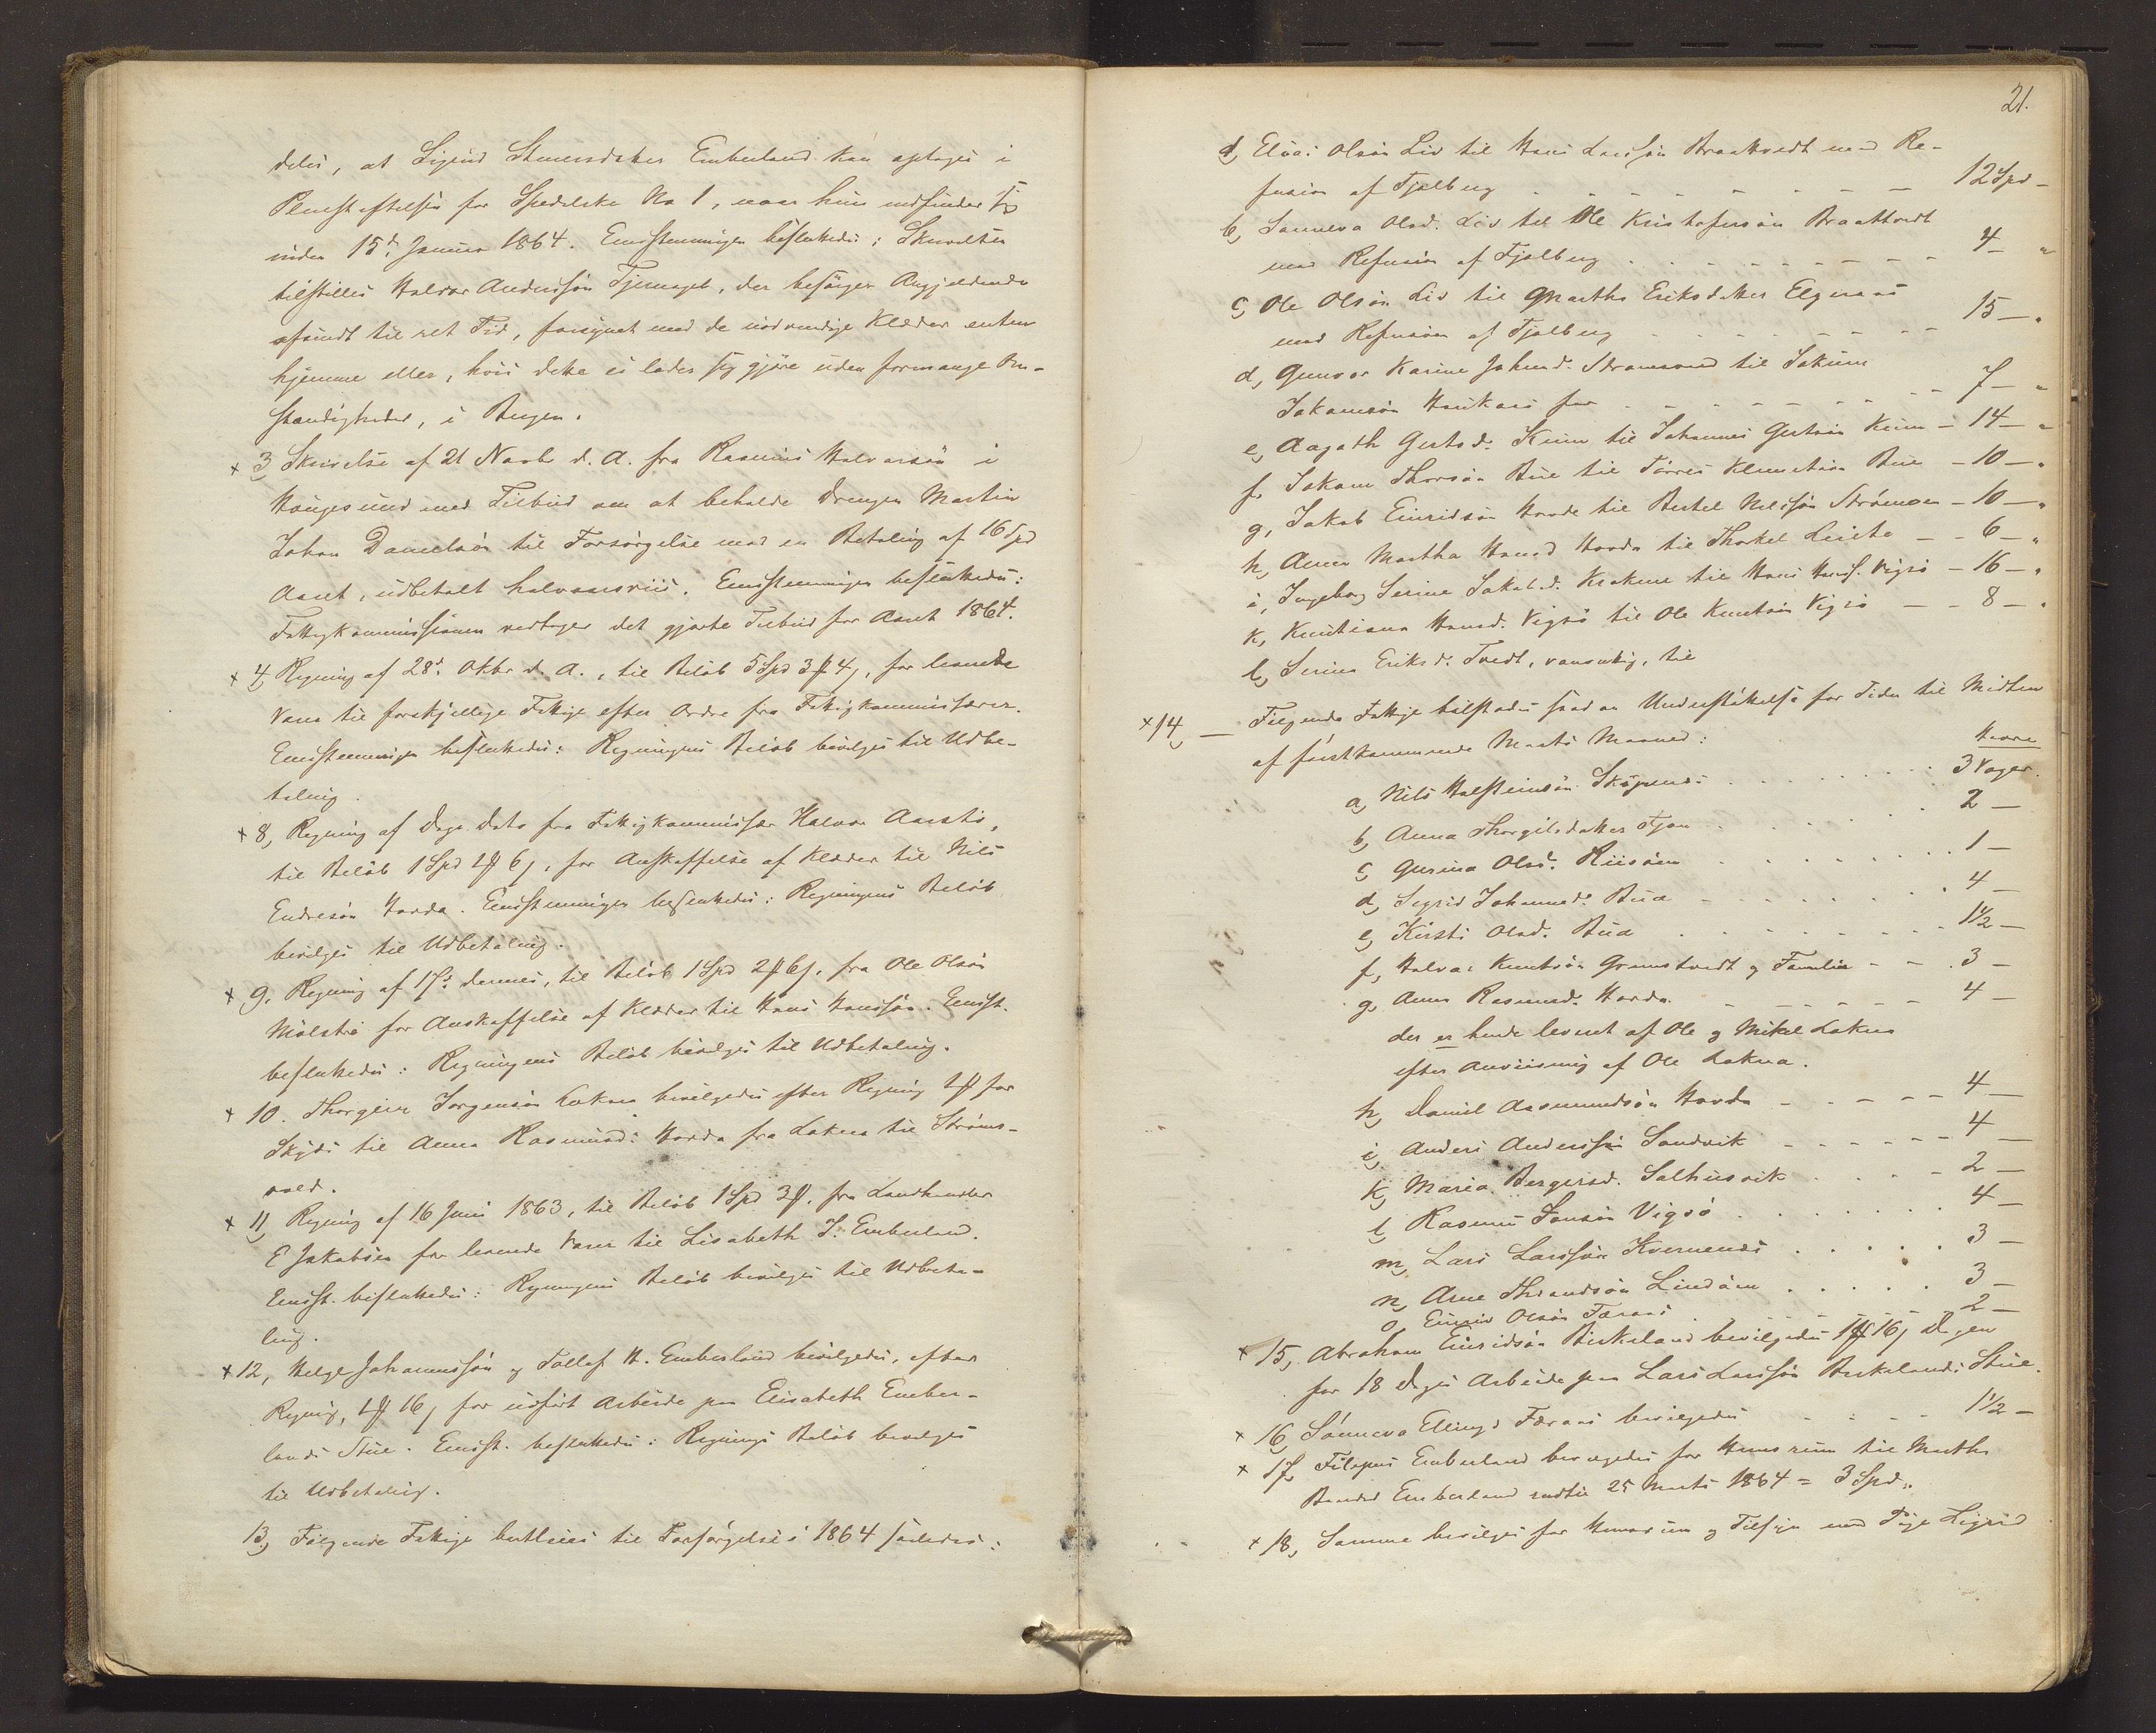 deles, at Sigrid Steinersdatter Emberland kan optages i
Pleiestiftelsen for Spedalske No 1, naar hun indfinder sig
inden 15de Januar 1864. Eenstemmigen besluttedes: Skrivelsen
tilstilles Halvor Anderssön Tjernagel, der besörger Angjeldende
afsendt til ret Tid, forsynet med de nödvendige Klæder enten
hjemme eller, hvis dette ei lader sig gjöre uden formange Om-
stændigheder, i Bergen.
x 3, Skrivelse af 21 Novbr d. A. fra Rasmus Halvorsön i
Haugesund med Tilbud om at beholde Drengen Martin
Johan Danielsön til Forsörgelse mod en Betaling af 16 Spd
Aaret, udbetalt halvaarsviis. Eenstemmigen besluttedes:
Fattigkommissionen vedtager det gjorte Tilbud for Aaret 1864.
x 4, Regning af 28de Oktbr d. A., til Belöb 5 Spd 3 ß 4, for leverede
Varer til forskjellige Fattige efter Ordre fra Fattigkommissærer.
Eenstemmigen besluttedes: Regningens Belöb bevilges til Udbe-
taling.
x 8, Regning af Dags Dato fra Fattigkommissær Halvor Aarstö,
til Belöb 1 Spd 2 ß 6, for Anskaffelse af Klæder til Nils
Endresön Hovda. Eenstemmigen besluttedes: Regningens Belöb
bevilges til Udbetaling.
x 9, Regning af 17de dennes, til Belöb 1 Spd 2 ß 6, fra Ole Olsön
Mölstre for Anskaffelse af Klæder til Hans Hanssön. Eenst.
besluttedes: Regningens Belöb bevilges til Udbetaling.
x 10. Thorgeir Jorgensön Lokna bevilgedes efter Regning 2 ß for
Skyds til Anna Rasmusd: Hovda fra Lokna til Ströms-
vold.
x 11, Regning af 16 Juni 1863, til Belöb 1 Spd 3 ß. fra Landhandler
E Jakobsen for leverede Varer til Lisabeth J: Emberland.
Eenst. besluttedes: Regningens Belöb bevilges til Udbeta-
ling.
x 12, Helge Johannessön og Tollef H. Emberland bevilgedes, efter
Regning, 4 ß 16, for udfört Arbeide paa Elisabeth Ember-
lands Stue. Eenst. besluttedes: Regnings Belöb bevilges
til Udbetaling.
13, Fölgende Fattige bortleies til Forsörgelse i 1864 saaledes:
21.
a, Elias Olsön Liv til Hans Larssön Braattvedt med Re-
fusion af Fjelberg 12 Spd -
b, Sønneva Olsd. Liv til Ole Kristofersön Braattvedt
med Refusion af Fjelberg 4 - "
c, Ole Olsön Liv til Martha Eriksdatter Elgeraas
med Refusion af Fjelberg 15 - "
d, Gunvor Karine Johnsd. Strømsvold til Jakum
Jakamsön Haukaas for 7 - "
e, Aagath Gertsd. Keim til Johannes Gertsön Keim - 14 - "
f, Jokum Thorsön Bue til Törres Klemetsön Bue - 10 - "
g, Jakob Einridsön Hovde til Bertel Nilssön Strömöen - 10 - "
h, Anna Martha Hansd Hovda til Thorkel - - 6 - "
i, Ingeborg Serine Jakobsd. til Hans Hanss. Vigsö - 16 - "
k, Knutiana Hansd. Vigsö til Ole Knutsön Vigsö - - 8 - "
l, Serina Eriksd. Tvedt, vanvittig, til
x 14, Fölgende Fattige tilstodes saadan Understöttelse for Tiden til Midten
af förstkommende Marts Maaned: Havre
a, Nils Halsteinsön 3 Voger.
b, Anna Thorgilsdatter 2 -
c, Gurina Olsd. Riisöen 1 -
d, Sigrid Johannesd. Bua 4 -
e, Kirsti Olsd. Bua 1½ -
f, Halvor Knutsön Grønstvedt og Familie - - 3 -
g, Anna Rasmusd. Hovda 4 -
der er hende leveret af Ole og Mikel Lokna
efter Anviisning af Ole Lokna.
h, Daniel Aasmundsön Hovda 4 -
i, Anders Anderssön Sandvik 4 -
k, Maria Bergersd. Salhusvik 2 -
l, Rasmus Jonsön Vigsö 4 -
m, Lars Larssön Kvernenæs 3 -
n, Arne Thrandsön Lindöen 3 -
o, Einriv Olsön Færaas 2 -
x 15, Abraham Einridsön Birkeland bevilgedes 1 ß 16 Dagen
for 18 Dages Arbeide paa Lars Larssön Birkelands Stue.
x 16, Sönneva Ellingsd Færaas bevilgedes 1½ -
x 17, Filippus Emberland bevilgedes for Huusrum til Martha
Emberland indtil 25 Marts 1864 = 3 Spd.
x 18, Samme bevilges for Huusrum og Tilsyn med Pige Sigrid